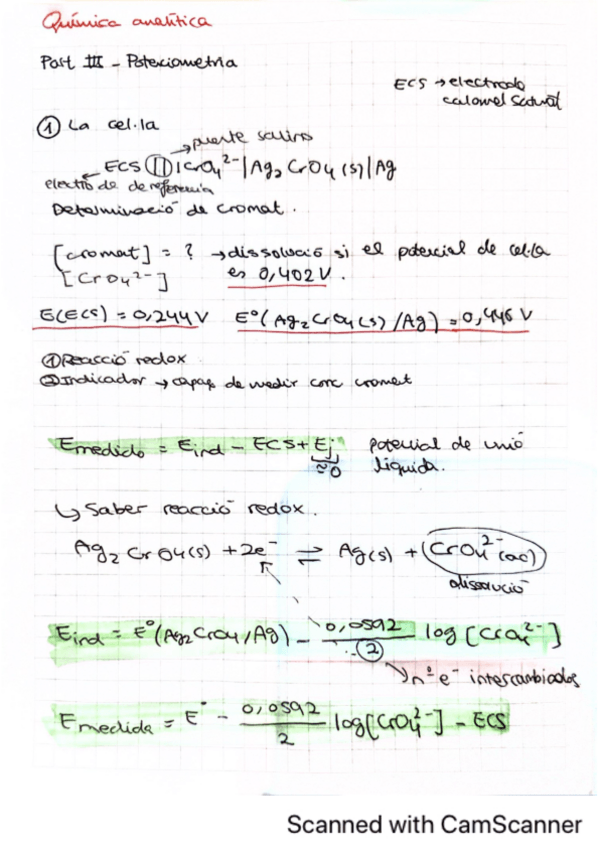 Química analítica
Part III - Potenciometria
ECS → electrodo
calomel saturat
① La cel·la
→ puente salino
ECS || CrO₄²⁻ | Ag₂CrO₄(s) | Ag
electro de de referencia
Determinació de cromat.
[cromat] = ? → dissolució si el potencial de cel·la
[CrO₄²⁻] es 0,402 V.
E(ECS) = 0,244 V E°(Ag₂CrO₄(s)/Ag) = 0,446 V
① Reacció redox
② Indicador → capaç de medir conc cromat
Emedido = Eind - ECS + Ej potencial de unió
≈0 líquida.
↳ Saber reacció redox.
Ag₂CrO₄(s) + 2e⁻ ⇌ Ag(s) + CrO₄²⁻(ac)
dissolució
Eind = E°(Ag₂CrO₄/Ag) - 0,0592/2 log [CrO₄²⁻]
nº e⁻ intercambiados
Emedida = E° - 0,0592/2 log[CrO₄²⁻] - ECS
Scanned with CamScanner